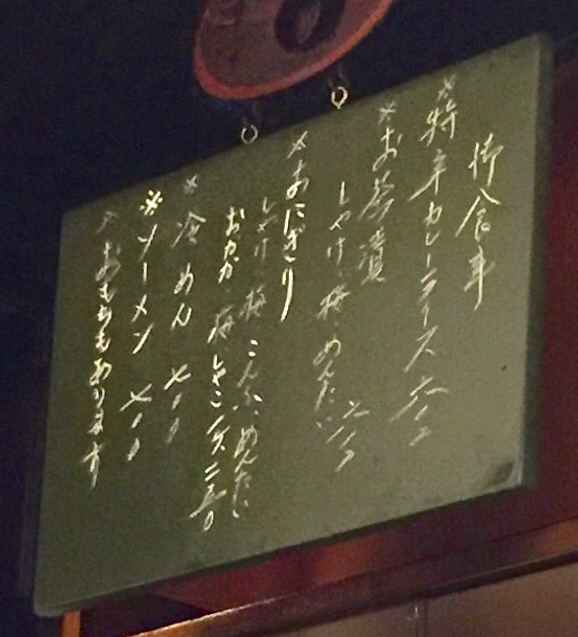 御食事
※特辛カレーライス 六〇〇
※お茶漬
しゃけ、梅、めんたい 六〇〇
※おにぎり
しゃけ、梅、こんぶ、めんたい
おかか、梅しそ 一ヶ二五〇
※冷めん 七〇〇
※ソーメン 七〇〇
※おもちもあります